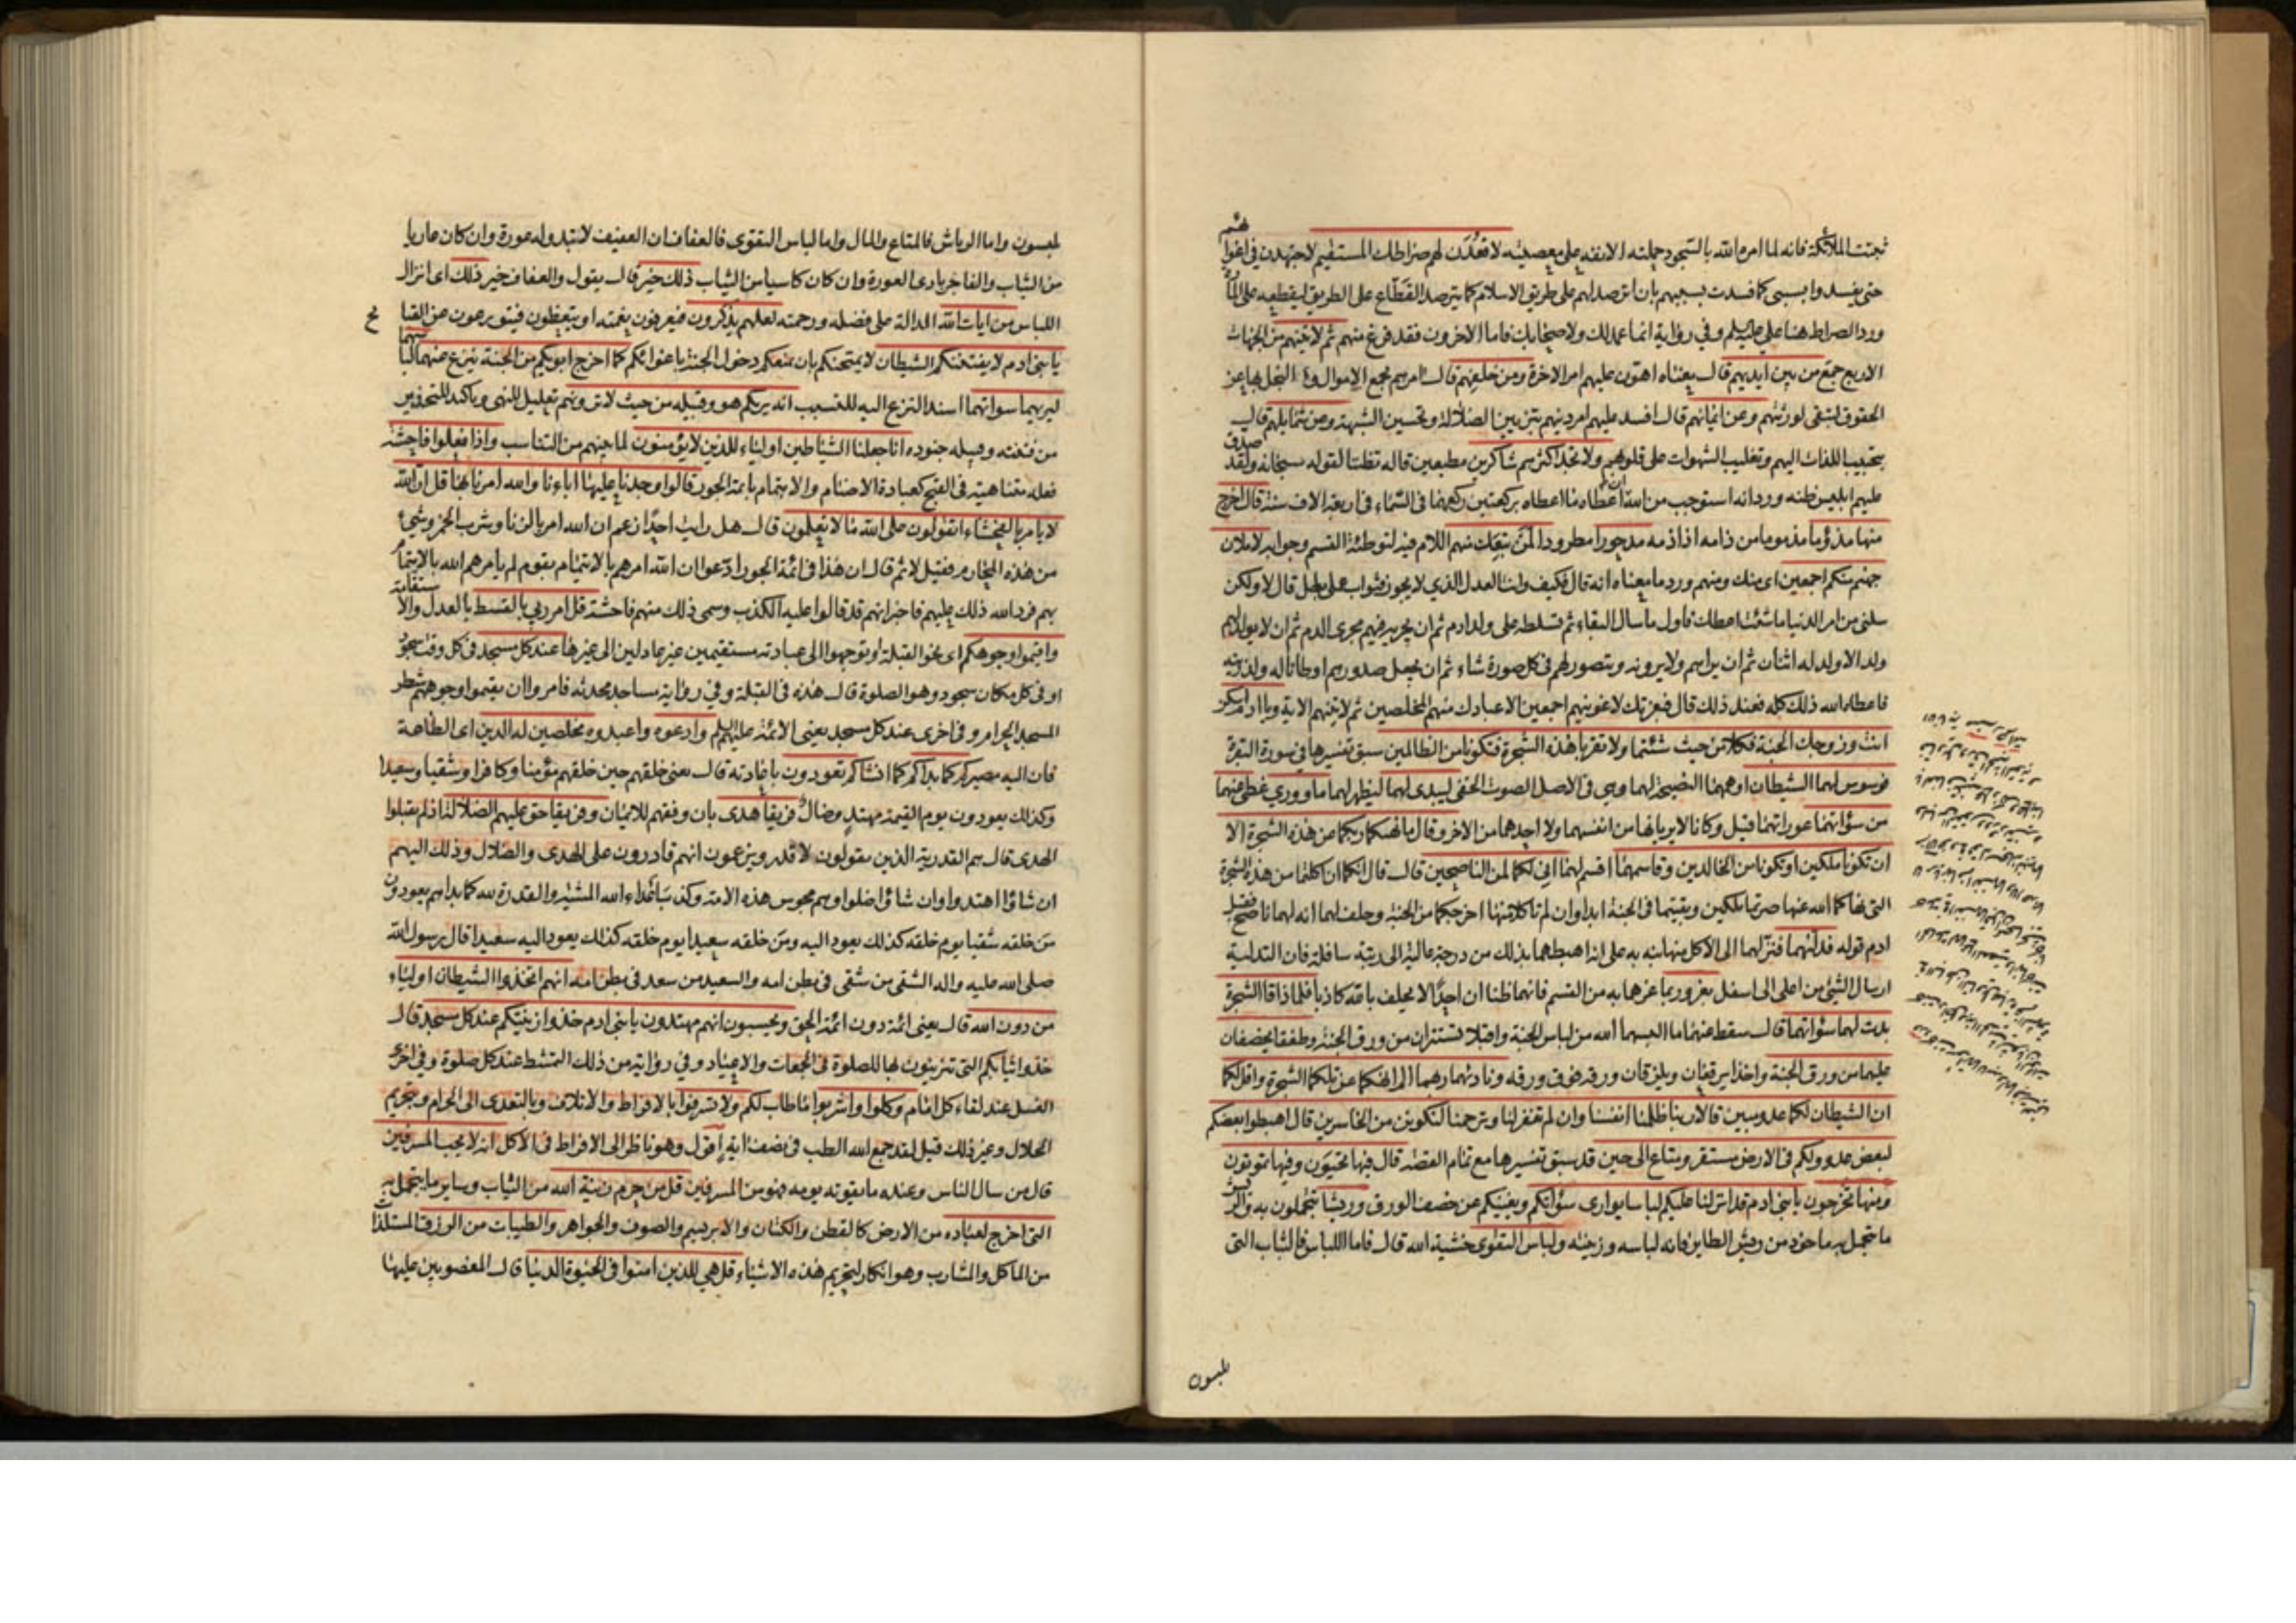 ثبتت الملائكة فانه لما امره الله بالسجود حملته الانفه على معصيته لاقعدن لهم صراطك المستقيم لاجتهدن في اغوائهم
حتى يفسدوا بسببى كما فسدت بسببهم بان اترصد لهم على طريق الاسلام كما يترصد القطاع على الطريق ليقطعه على المارة
ورد الصراط هنا على عليه السلم وفي رواية انما عمد لك ولاصحابك فاما الاخرون فقد فرغ منهم ثم لاتينهم من الجهات
الاربع جمع من بين ايديهم قال معناه اهون عليهم امر الاخرة ومن خلفهم قال امرهم بجمع الاموال والبخل بها عن
الحقوق لتبقى لورثتهم وعن ايمانهم قال افسد عليهم امر دينهم بتزيين الضلالة وتحسين الشبهة وعن شمائلهم قال
بتحبيب اللذات اليهم وتغليب الشهوات على قلوبهم ولا تجد اكثرهم شاكرين مطيعين قاله تظننا لقوله سبحانه ولقد صدق
عليهم ابليس ظنه ورد انه استوجب من الله ان اعطاه ما اعطاه بركعتين ركعهما في السماء في اربعة الاف سنة قال اخرج
منها مذؤما مذموما من ذامه اذا ذمه مدحورا مطرودا لمن تبعك منهم اللام فيه لتوطئة القسم وجوابه لاملان
جهنم منكم اجمعين اى منك ومنهم ورد ما معناه انه قال فكيف وانت العدل الذي لا يجوز فثواب عملى بطل قال لا ولكن
سلنى من امر الدنيا ما شئت اعطك فاول ما سال البقاء ثم تسلطه على ولد ادم ثم ان يجريه فيهم مجرى الدم ثم ان لا يولد لهم
ولد الا ولد له اثنان ثم ان يراهم ولا يرونه ويتصور لهم في كل صورة شاء ثم ان يجعل صدورهم اوطانا له ولذريته
فاعطاه الله ذلك كله فعند ذلك قال فبعزتك لاغوينهم اجمعين الا عبادك منهم المخلصين ثم لاتينهم الاية ويا ادم اسكن
انت وزوجك الجنة فكلا من حيث شئتما ولا تقربا هذه الشجرة فتكونا من الظالمين سبق تفسيرها في سورة البقرة
فوسوس لهما الشيطان اوهمهما النصيحة لهما وهى في الاصل الصوت الخفى ليبدى لهما ليظهر لهما ما ووري غطى عنهما
من سؤاتهما عوراتهما قيل وكانا لا يريانها من انفسهما ولا احدهما من الاخر وقال ما نهيكما ربكما عن هذه الشجرة الا
ان تكونا ملكين او تكونا من الخالدين وقاسمهما اقسم لهما اني لكما لمن الناصحين قال قال انكما ان اكلتما من هذه الشجرة
التى نهاكما الله عنها صرتما ملكين وبقيتما في الجنة ابدا وان لم تاكلا منها اخرجكما من الجنة وحلف لهما انه لهما ناصح فقبل
ادم قوله فدليهما فنزلهما الى الاكل منها نبه به على انه اهبطهما بذلك من درجة عالية الى رتبة سافلة فان التدلية
ارسال الشئ من اعلى الى اسفل بغرور بما غرهما به من القسم فانهما ظنا ان احدا لا يحلف بالله كاذبا فلما ذاقا الشجرة
بدت لهما سؤاتهما قال سقط عنهما ما البسهما الله من لباس الجنة واقبلا تستتران من ورق الجنة وطفقا يخصفان
عليهما من ورق الجنة واخذا يرقعان ويلزقان ورقه فوق ورقه وناديهما ربهما الم انهكما عن تلكما الشجرة واقل لكما
ان الشيطان لكما عدو مبين قالا ربنا ظلمنا انفسنا وان لم تغفر لنا وترحمنا لنكونن من الخاسرين قال اهبطوا بعضكم
لبعض عدو ولكم في الارض مستقر ومتاع الى حين قد سبق تفسيرها مع تمام القصه قال فيها تحيون وفيها تموتون
ومنها تخرجون يا بني ادم قد انزلنا عليكم لباسا يوارى سؤاتكم ويغنيكم عن خصف الورق وريشا تتجملون به والريش
ما تجمل به ماخوذ من ريش الطاير فانه لباسه وزينته ولباس التقوى خشية الله قال فاما اللباس فالثياب التى
يلبسون
يلبسون واما الرياش فالمتاع والمال واما لباس التقوى فالعفاف ان العفيف لا تبدو له عورة وان كان عاريا
من الثياب والفاجر بادى العورة وان كان كاسيا من الثياب ذلك خير قال يقول والعفاف خير ذلك اى انزال
اللباس من ايات الله الدالة على فضله ورحمته لعلهم يذكرون فيعرفون نعمته او يتعظون فيتورعون عن القبائح
يا بني ادم لا يفتننكم الشيطان لا يمتحنكم بان يمنعكم دخول الجنة باغوائكم كما اخرج ابويكم من الجنة ينزع عنهما لباسهما
ليريهما سواتهما اسند النزع اليه للتسبب انه يريكم هو وقبيله من حيث لا ترونهم تعليل للنهى وتاكيد للتحذير
من فتنته وقبيله جنوده انا جعلنا الشياطين اولياء للذين لا يؤمنون لما بينهم من التناسب واذا فعلوا فاحشة
فعله متناهية في القبح كعبادة الاصنام والايتمام بائمة الجور قالوا وجدنا عليها اباءنا والله امرنا بها قل ان الله
لا يامر بالفحشاء اتقولون على الله ما لا تعلمون قال هل رايت احدا زعم ان الله امر بالزنا وشرب الخمر وشئ
من هذه المحارم فقيل لا ثم قال ان هذا في ائمة الجور ادعوا ان الله امرهم بالايتمام بقوم لم يامرهم الله بالايتمام
بهم فرد الله ذلك عليهم فاخبر انهم قد قالوا عليه الكذب وسمى ذلك منهم فاحشة قل امر ربي بالقسط بالعدل والاستقامة
واقيموا وجوهكم اى نحو القبلة او توجهوا الى عبادته مستقيمين غير عادلين الى غيرها عند كل مسجد في كل وقت سجود
او في كل مكان سجود وهو الصلوة قال هذه في القبلة وفي رواية مساجد محدثه فامروا ان يقيموا وجوههم شطر
المسجد الحرام وفي اخرى عند كل مسجد يعنى الائمة عليهم السلم وادعوه واعبدوه مخلصين له الدين اى الطاعة
فان اليه مصيركم كما بداكم كما انشاكم تعودون باعادته قال يعنى خلقهم حين خلقهم مؤمنا وكافرا وشقيا وسعيدا
وكذلك يعودون يوم القيمة مهتد وضال فريقا هدى بان وفقهم للايمان وفريقا حق عليهم الضلالة اذ لم يقبلوا
الهدى قال هم القدرية الذين يقولون لا قدر ويزعمون انهم قادرون على الهدى والضلال وذلك اليهم
ان شاؤا اهتدوا وان شاؤا ضلوا وهم مجوس هذه الامة وكذب اعداء الله المشية والقدرة لله كما بداهم يعودون
من خلقه شقيا يوم خلقه كذلك يعود اليه ومن خلقه سعيدا يوم خلقه كذلك يعود اليه سعيدا قال رسول الله
صلى الله عليه واله الشقى من شقى في بطن امه والسعيد من سعد في بطن امه انهم اتخذوا الشيطان اولياء
من دون الله قال يعنى ائمة دون ائمة الحق ويحسبون انهم مهتدون يا بنى ادم خذوا زينتكم عند كل مسجد قال
خذوا ثيابكم التى تتزينون بها للصلوة في الجمعات والاعياد وفي رواية من ذلك التمشط عند كل صلوة وفي اخرى
الغسل عند لقاء كل امام وكلوا واشربوا ما طاب لكم ولا تسرفوا بالافراط والاتلاف وبالتعدى الى الحرام وتحريم
الحلال وغير ذلك قيل لقد جمع الله الطب في نصف اية اقول وهو ناظر الى الافراط في الاكل انه لا يحب المسرفين
قال من سال الناس وعنده ما يقوته يومه فهو من المسرفين قل من حرم زينة الله من الثياب وساير ما يتجمل به
التى اخرج لعباده من الارض كالقطن والكتان والابريسم والصوف والجواهر والطيبات من الرزق المستلذات
من الماكل والمشارب وهو انكار لتحريم هذه الاشياء قل هي للذين امنوا في الحيوة الدنيا قال المغصوبين عليها